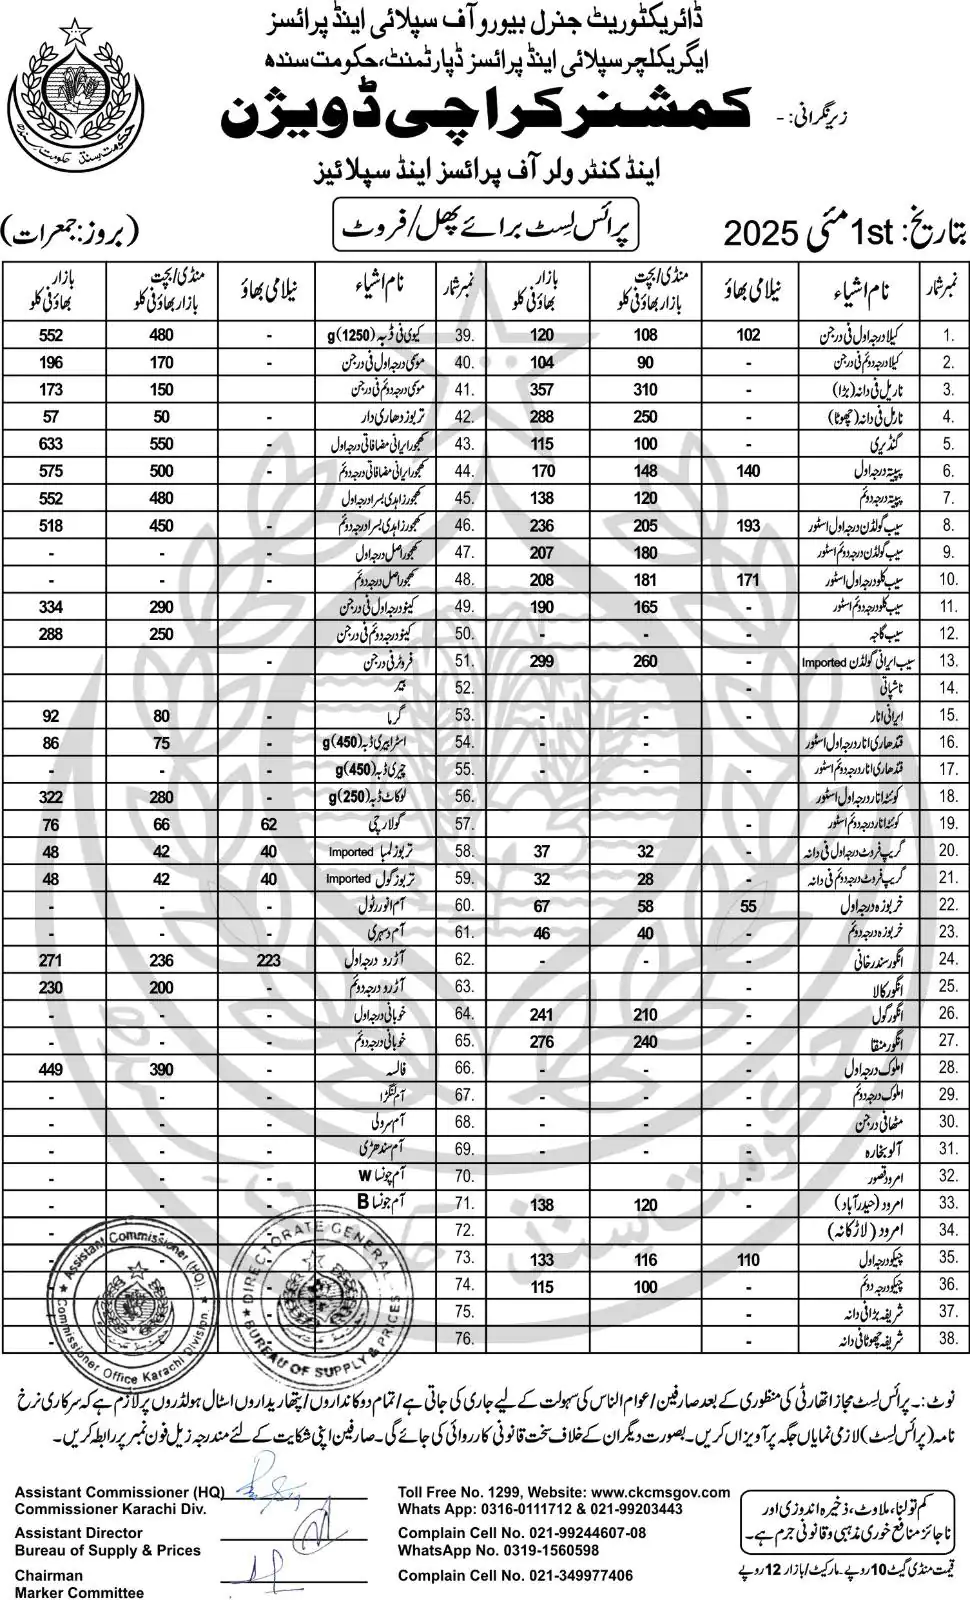 ڈائریکٹوریٹ جنرل بیورو آف سپلائی اینڈ پرائسز
ایگریکلچر سپلائی اینڈ پرائسز ڈپارٹمنٹ، حکومت سندھ
زیرِ نگرانی: - کمشنر کراچی ڈویژن
اینڈ کنٹرولر آف پرائسز اینڈ سپلائیز
بتاریخ: 1st مئی 2025 پرائس لسٹ برائے پھل/فروٹ (بروز: جمعرات)
نمبر شمار نام اشیاء نیلامی بھاؤ منڈی/بچت بازار بھاؤ فی کلو بازار بھاؤ فی کلو نمبر شمار نام اشیاء نیلامی بھاؤ منڈی/بچت بازار بھاؤ فی کلو بازار بھاؤ فی کلو
1. کیلا درجہ اول فی درجن 102 108 120 39. کیوی فی ڈبہ (1250)g - 480 552
2. کیلا درجہ دوئم فی درجن - 90 104 40. موسمی درجہ اول فی درجن - 170 196
3. ناریل فی دانہ (بڑا) - 310 357 41. موسمی درجہ دوئم فی درجن - 150 173
4. ناریل فی دانہ (چھوٹا) - 250 288 42. تربوز دھاری دار - 50 57
5. گنڈیری - 100 115 43. کھجور ایرانی مضافاتی درجہ اول - 550 633
6. پپیتہ درجہ اول 140 148 170 44. کھجور ایرانی مضافاتی درجہ دوئم - 500 575
7. پپیتہ درجہ دوئم - 120 138 45. کھجور زاہدی بسرا درجہ اول - 480 552
8. سیب گولڈن درجہ اول اسٹور 193 205 236 46. کھجور زاہدی بسرا درجہ دوئم - 450 518
9. سیب گولڈن درجہ دوئم اسٹور - 180 207 47. کھجور اصل درجہ اول - - -
10. سیب کلو درجہ اول اسٹور 171 181 208 48. کھجور اصل درجہ دوئم - - -
11. سیب کلو درجہ دوئم اسٹور - 165 190 49. کینو درجہ اول فی درجن - 290 334
12. سیب گاجہ - - - 50. کینو درجہ دوئم فی درجن - 250 288
13. سیب ایرانی گولڈن Imported - 260 299 51. فروٹر فی درجن -
14. ناشپاتی - 52. بیر
15. ایرانی انار - - - 53. گرما - 80 92
16. قندھاری انار درجہ اول اسٹور - - - 54. اسٹرابیری ڈبہ (450)g - 75 86
17. قندھاری انار درجہ دوئم اسٹور - - - 55. چیری ڈبہ (450)g - - -
18. کوئٹہ انار درجہ اول اسٹور 56. لوکاٹ ڈبہ (250)g - 280 322
19. کوئٹہ انار درجہ دوئم اسٹور - 57. گولارچی 62 66 76
20. گریپ فروٹ درجہ اول فی دانہ - 32 37 58. تربوز لمبا Imported 40 42 48
21. گریپ فروٹ درجہ دوئم فی دانہ - 28 32 59. تربوز گول Imported 40 42 48
22. خربوزہ درجہ اول 55 58 67 60. آم انور رٹول - - -
23. خربوزہ درجہ دوئم - 40 46 61. آم دسہری - - -
24. انگور سندرخانی - - - 62. آڑو درجہ اول 223 236 271
25. انگور کالا - 63. آڑو درجہ دوئم - 200 230
26. انگور گول - 210 241 64. خوبانی درجہ اول - - -
27. انگور منقا - 240 276 65. خوبانی درجہ دوئم - - -
28. املوک درجہ اول - - - 66. فالسہ - 390 449
29. املوک درجہ دوئم - - - 67. آم لنگڑا - - -
30. مٹھا فی درجن - - - 68. آم سرولی - - -
31. آلو بخارہ - - - 69. آم سندھڑی - - -
32. امرود قصور - 70. آم چونسا W - - -
33. امرود (حیدرآباد) - 120 138 71. آم چونسا B - - -
34. امرود (لاڑکانہ) 72. -
35. چیکو درجہ اول 110 116 133 73. -
36. چیکو درجہ دوئم - 100 115 74. -
37. شریفہ بڑا فی دانہ - 75. -
38. شریفہ چھوٹا فی دانہ - 76. -
Assistant Commissioner (HQ)
Commissioner Office Karachi Division.
DIRECTORATE GENERAL
BUREAU OF SUPPLY & PRICES
نوٹ:۔ پرائس لسٹ مجاز اتھارٹی کی منظوری کے بعد صارفین/عوام الناس کی سہولت کے لیے جاری کی جاتی ہے/تمام دوکانداروں/پتھاریداروں اسٹال ہولڈروں پر لازم ہے کہ سرکاری نرخ
نامہ (پرائس لسٹ) لازمی نمایاں جگہ پر آویزاں کریں۔ بصورت دیگر ان کے خلاف سخت قانونی کارروائی کی جائے گی۔ صارفین اپنی شکایت کے لئے مندرجہ زیل فون نمبر پر رابطہ کریں۔
Assistant Commissioner (HQ)
Commissioner Karachi Div.
Assistant Director
Bureau of Supply & Prices
Chairman
Marker Committee
Toll Free No. 1299, Website: www.ckcmsgov.com
Whats App: 0316-0111712 & 021-99203443
Complain Cell No. 021-99244607-08
WhatsApp No. 0319-1560598
Complain Cell No. 021-349977406
کم تولنا، ملاوٹ، ذخیرہ اندوزی اور
ناجائز منافع خوری مذہبی و قانونی جرم ہے۔
قیمت منڈی گیٹ 10 روپے۔ مارکیٹ/بازار 12 روپے